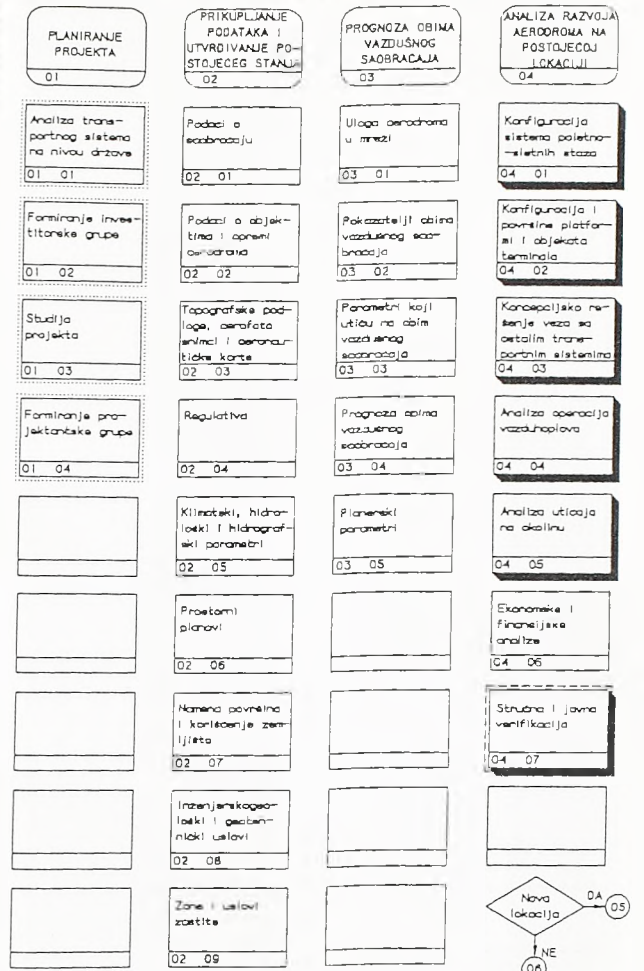 PLANIRANJE
PROJEKTA
01
Analiza trans-
portnog sistema
na nivou države
01 01
Formiranje inves-
titorske grupe
01 02
Studija
projekta
01 03
Formiranje pro-
jektantske grupe
01 04
PRIKUPLJANJE
PODATAKA I
UTVRDIVANJE PO-
STOJEĆEG STANJA
02
Podaci o
saobraćaju
02 01
Podaci o objek-
tima i opremi
aerodroma
02 02
Topografske pod-
loge, aerofoto
snimci i aeronau-
tičke karte
02 03
Regulativa
02 04
Klimatski, hidro-
loški i hidrograf-
ski parametri
02 05
Prostorni
planovi
02 06
Namena površina
i korišćenje zem-
ljišta
02 07
Inženjerskogeo-
loški i geoteh-
nički uslovi
02 08
Zone i uslovi
zaštite
02 09
PROGNOZA OBIMA
VAZDUŠNOG
SAOBRAĆAJA
03
Uloga aerodroma
u mreži
03 01
Pokazatelji obima
vazdušnog sao-
braćaja
03 02
Parametri koji
utiču na obim
vazdušnog
saobraćaja
03 03
Prognoza obima
vazdušnog
saobraćaja
03 04
Planerski
parametri
03 05
ANALIZA RAZVOJA
AERODROMA NA
POSTOJEĆOJ
LOKACIJI
04
Konfiguracija
sistema poletno-
-sletnih staza
04 01
Konfiguracija i
površine platfor-
mi i objekata
terminala
04 02
Koncepcijsko re-
šenje veza sa
ostalim trans-
portnim sistemima
04 03
Analiza operacija
vazduhoplova
04 04
Analiza uticaja
na okolinu
04 05
Ekonomske i
finansijske
analize
04 06
Stručna i javna
verifikacija
04 07
Nova
lokacija
DA
05
NE
06